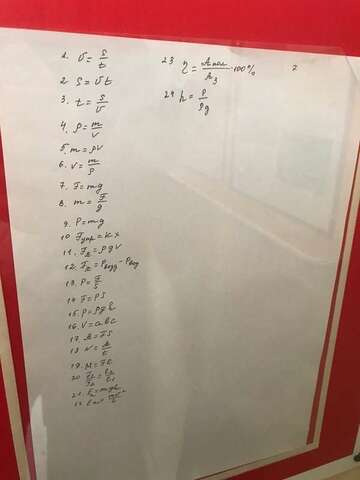 1. v = s/t
2. s = vt
3. t = s/v
4. ρ = m/V
5. m = ρV
6. V = m/ρ
7. F = mg
8. m = F/g
9. P = mg
10 Fупр = kx
11. FА = ρgV
12. FА = Pвозд - Pвод
13. P = F/S
14 F = PS
15. P = ρgh
16. V = abc
17. A = FS
18. N = A/t
19. M = Fl
20. F1/F2 = l2/l1
21. Eп = mgh
22. Eк = mv²/2
23 η = Aпол/Aз · 100%
24. h = P/ρg